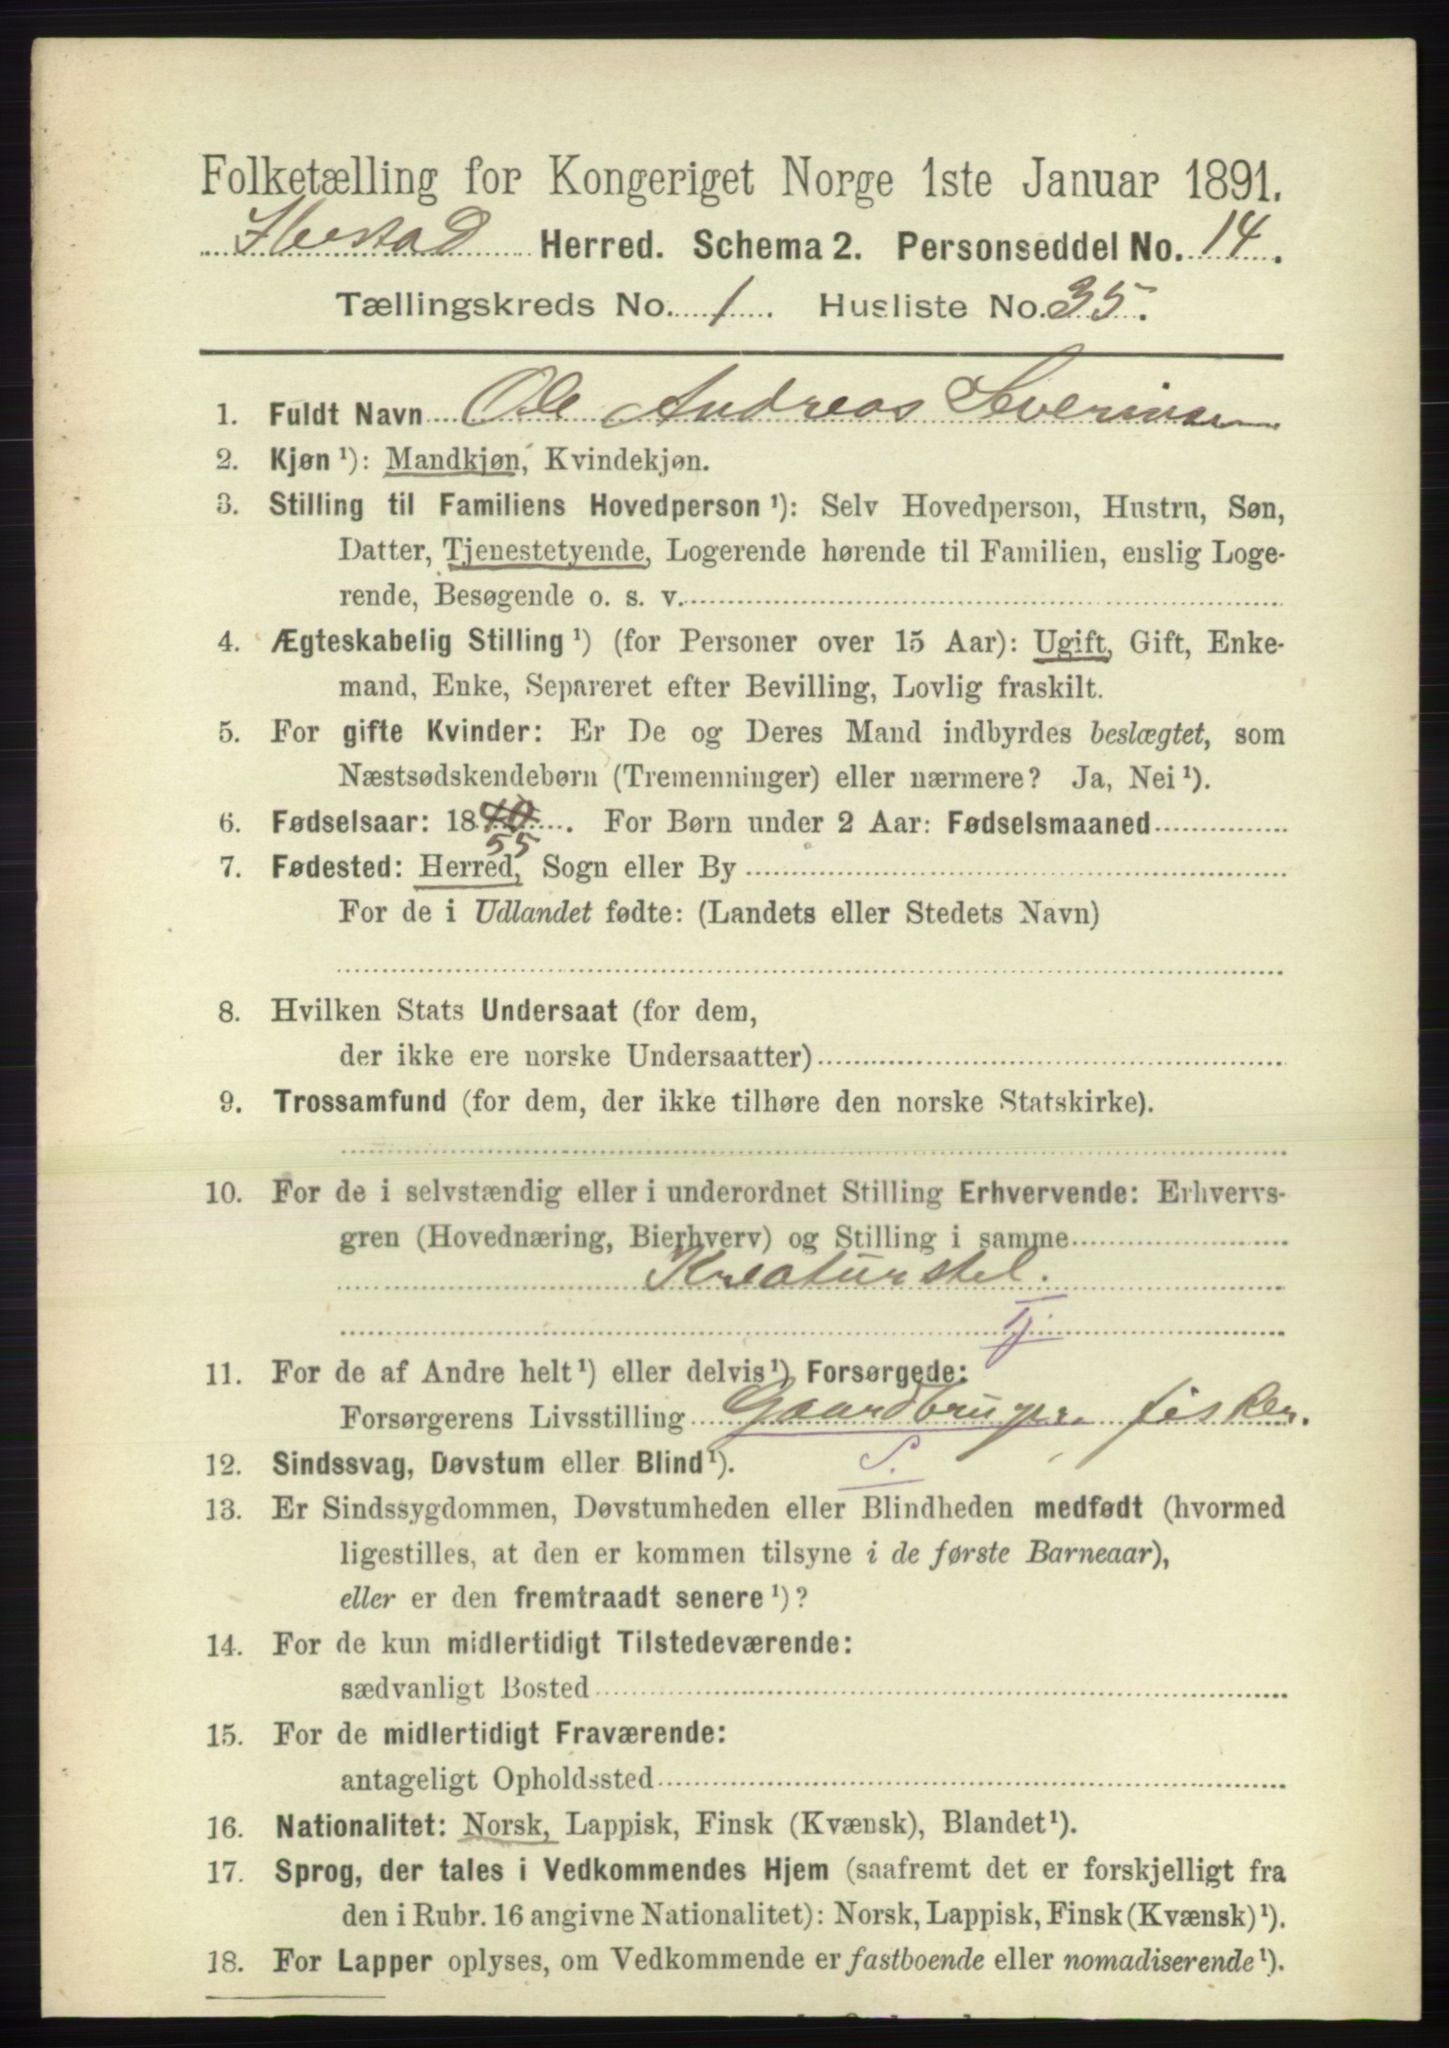 Folketælling for Kongeriget Norge 1ste Januar 1891.
Ibestad Herred. Schema 2. Personseddel No. 14.
Tællingskreds No. 1. Husliste No. 35.
1. Fuldt Navn Ole Andreas Severinsen
2. Kjøn ¹): Mandkjøn, Kvindekjøn.
3. Stilling til Familiens Hovedperson ¹): Selv Hovedperson, Hustru, Søn,
Datter, Tjenestetyende, Logerende hørende til Familien, enslig Loge-
rende, Besøgende o. s. v.
4. Ægteskabelig Stilling ¹) (for Personer over 15 Aar): Ugift, Gift, Enke-
mand, Enke, Separeret efter Bevilling, Lovlig fraskilt.
5. For gifte Kvinder: Er De og Deres Mand indbyrdes beslægtet, som
Næstsødskendebørn (Tremenninger) eller nærmere? Ja, Nei ¹).
6. Fødselsaar: 1840. For Børn under 2 Aar: Fødselsmaaned
55
7. Fødested: Herred, Sogn eller By
For de i Udlandet fødte: (Landets eller Stedets Navn)
8. Hvilken Stats Undersaat (for dem,
der ikke ere norske Undersaatter)
9. Trossamfund (for dem, der ikke tilhøre den norske Statskirke).
10. For de i selvstændig eller i underordnet Stilling Erhvervende: Erhvervs-
gren (Hovednæring, Bierhverv) og Stilling i samme
Kreaturstel.
Tj
11. For de af Andre helt ¹) eller delvis ¹) Forsørgede:
Forsørgerens Livsstilling Gaardbruger fisker.
12. Sindssvag, Døvstum eller Blind ¹). S.
13. Er Sindssygdommen, Døvstumheden eller Blindheden medfødt (hvormed
ligestilles, at den er kommen tilsyne i de første Barneaar),
eller er den fremtraadt senere ¹)?
14. For de kun midlertidigt Tilstedeværende:
sædvanligt Bosted
15. For de midlertidigt Fraværende:
antageligt Opholdssted
16. Nationalitet: Norsk, Lappisk, Finsk (Kvænsk), Blandet ¹).
17. Sprog, der tales i Vedkommendes Hjem (saafremt det er forskjelligt fra
den i Rubr. 16 angivne Nationalitet): Norsk, Lappisk, Finsk (Kvænsk) ¹).
18. For Lapper oplyses, om Vedkommende er fastboende eller nomadiserende ¹).